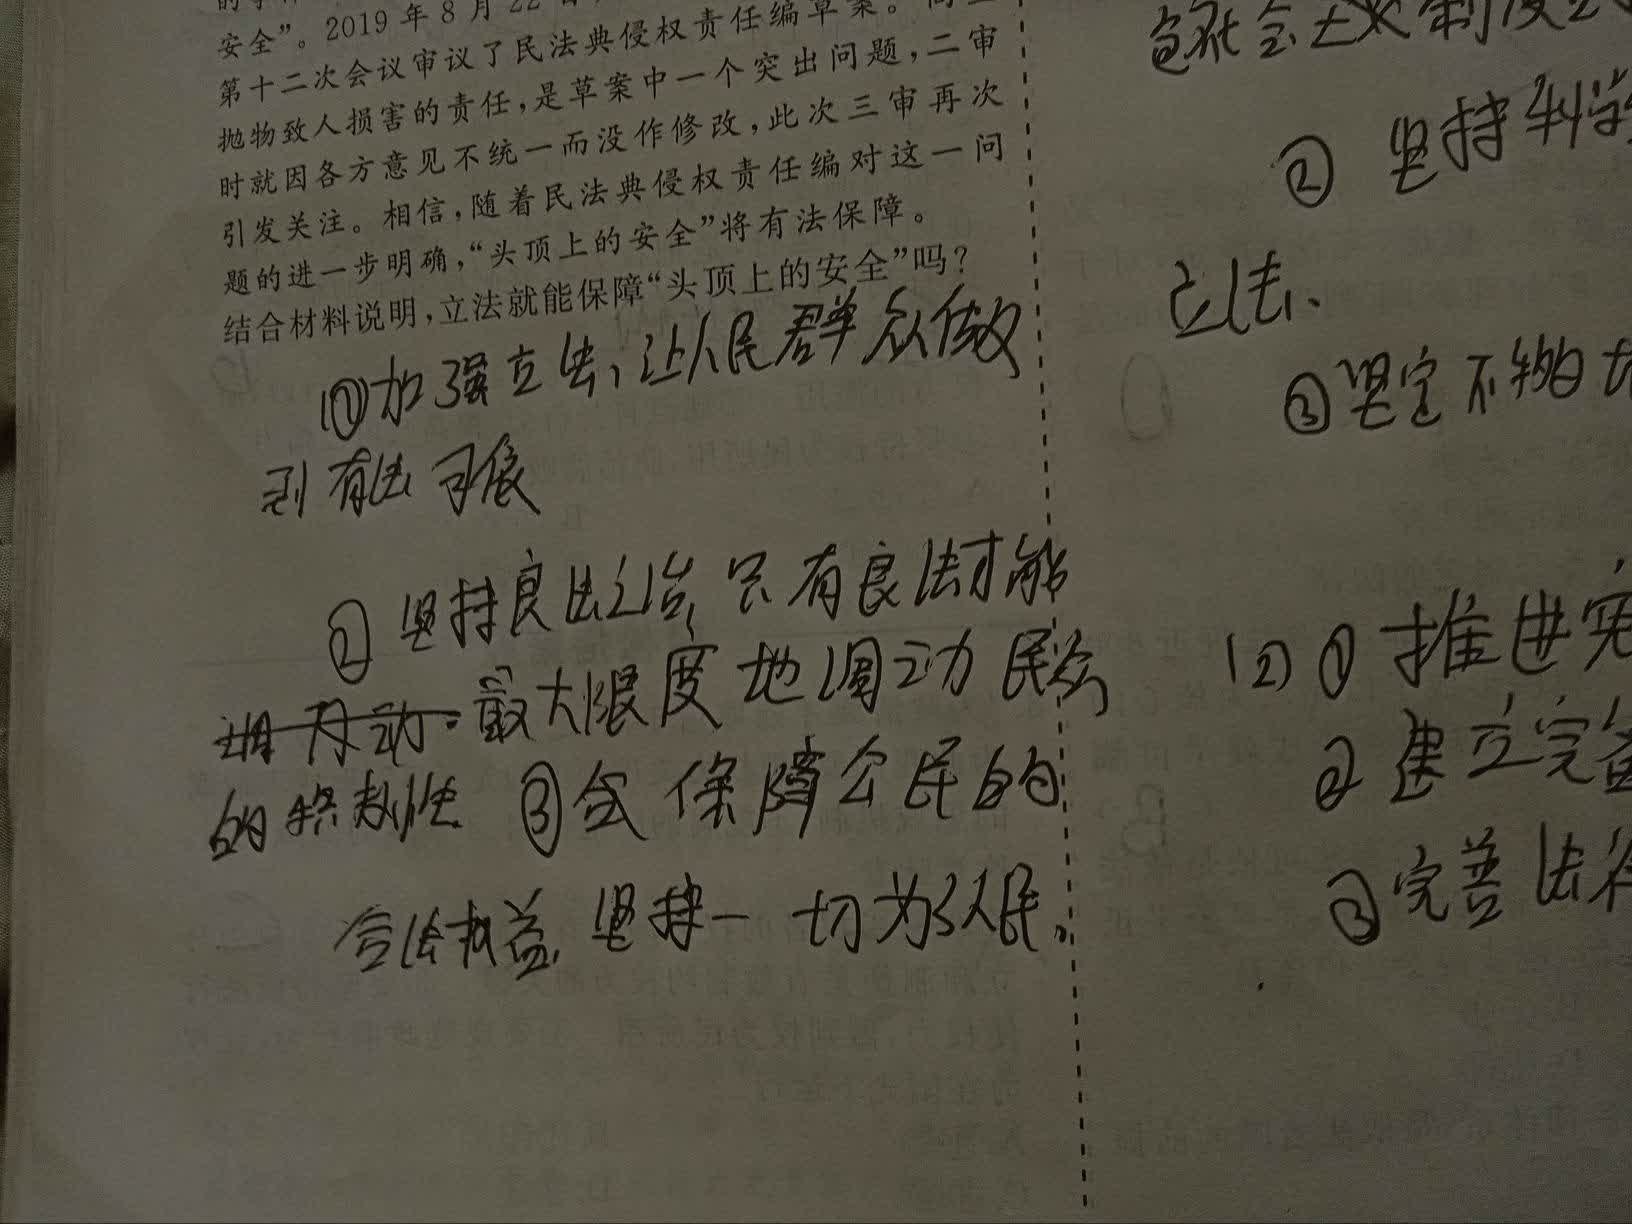 安全”。2019年8月22日
第十二次会议审议了民法典侵权责任编草案。
抛物致人损害的责任，是草案中一个突出问题，二审
时就因各方意见不统一而没作修改，此次三审再次
引发关注。相信，随着民法典侵权责任编对这一问
题的进一步明确，“头顶上的安全”将有法保障。
结合材料说明，立法就能保障“头顶上的安全”吗？
(1)①加强立法，让人民群众做
到有法可依
② 坚持良法之治，只有良法才能
最大限度地调动民众
的积极性 ③会保障公民的
合法权益，坚持一切为了人民。
色社会主义制度
② 坚持科学
立法、
③坚定不移
(2)①推进宪
②建立完备
③完善法律